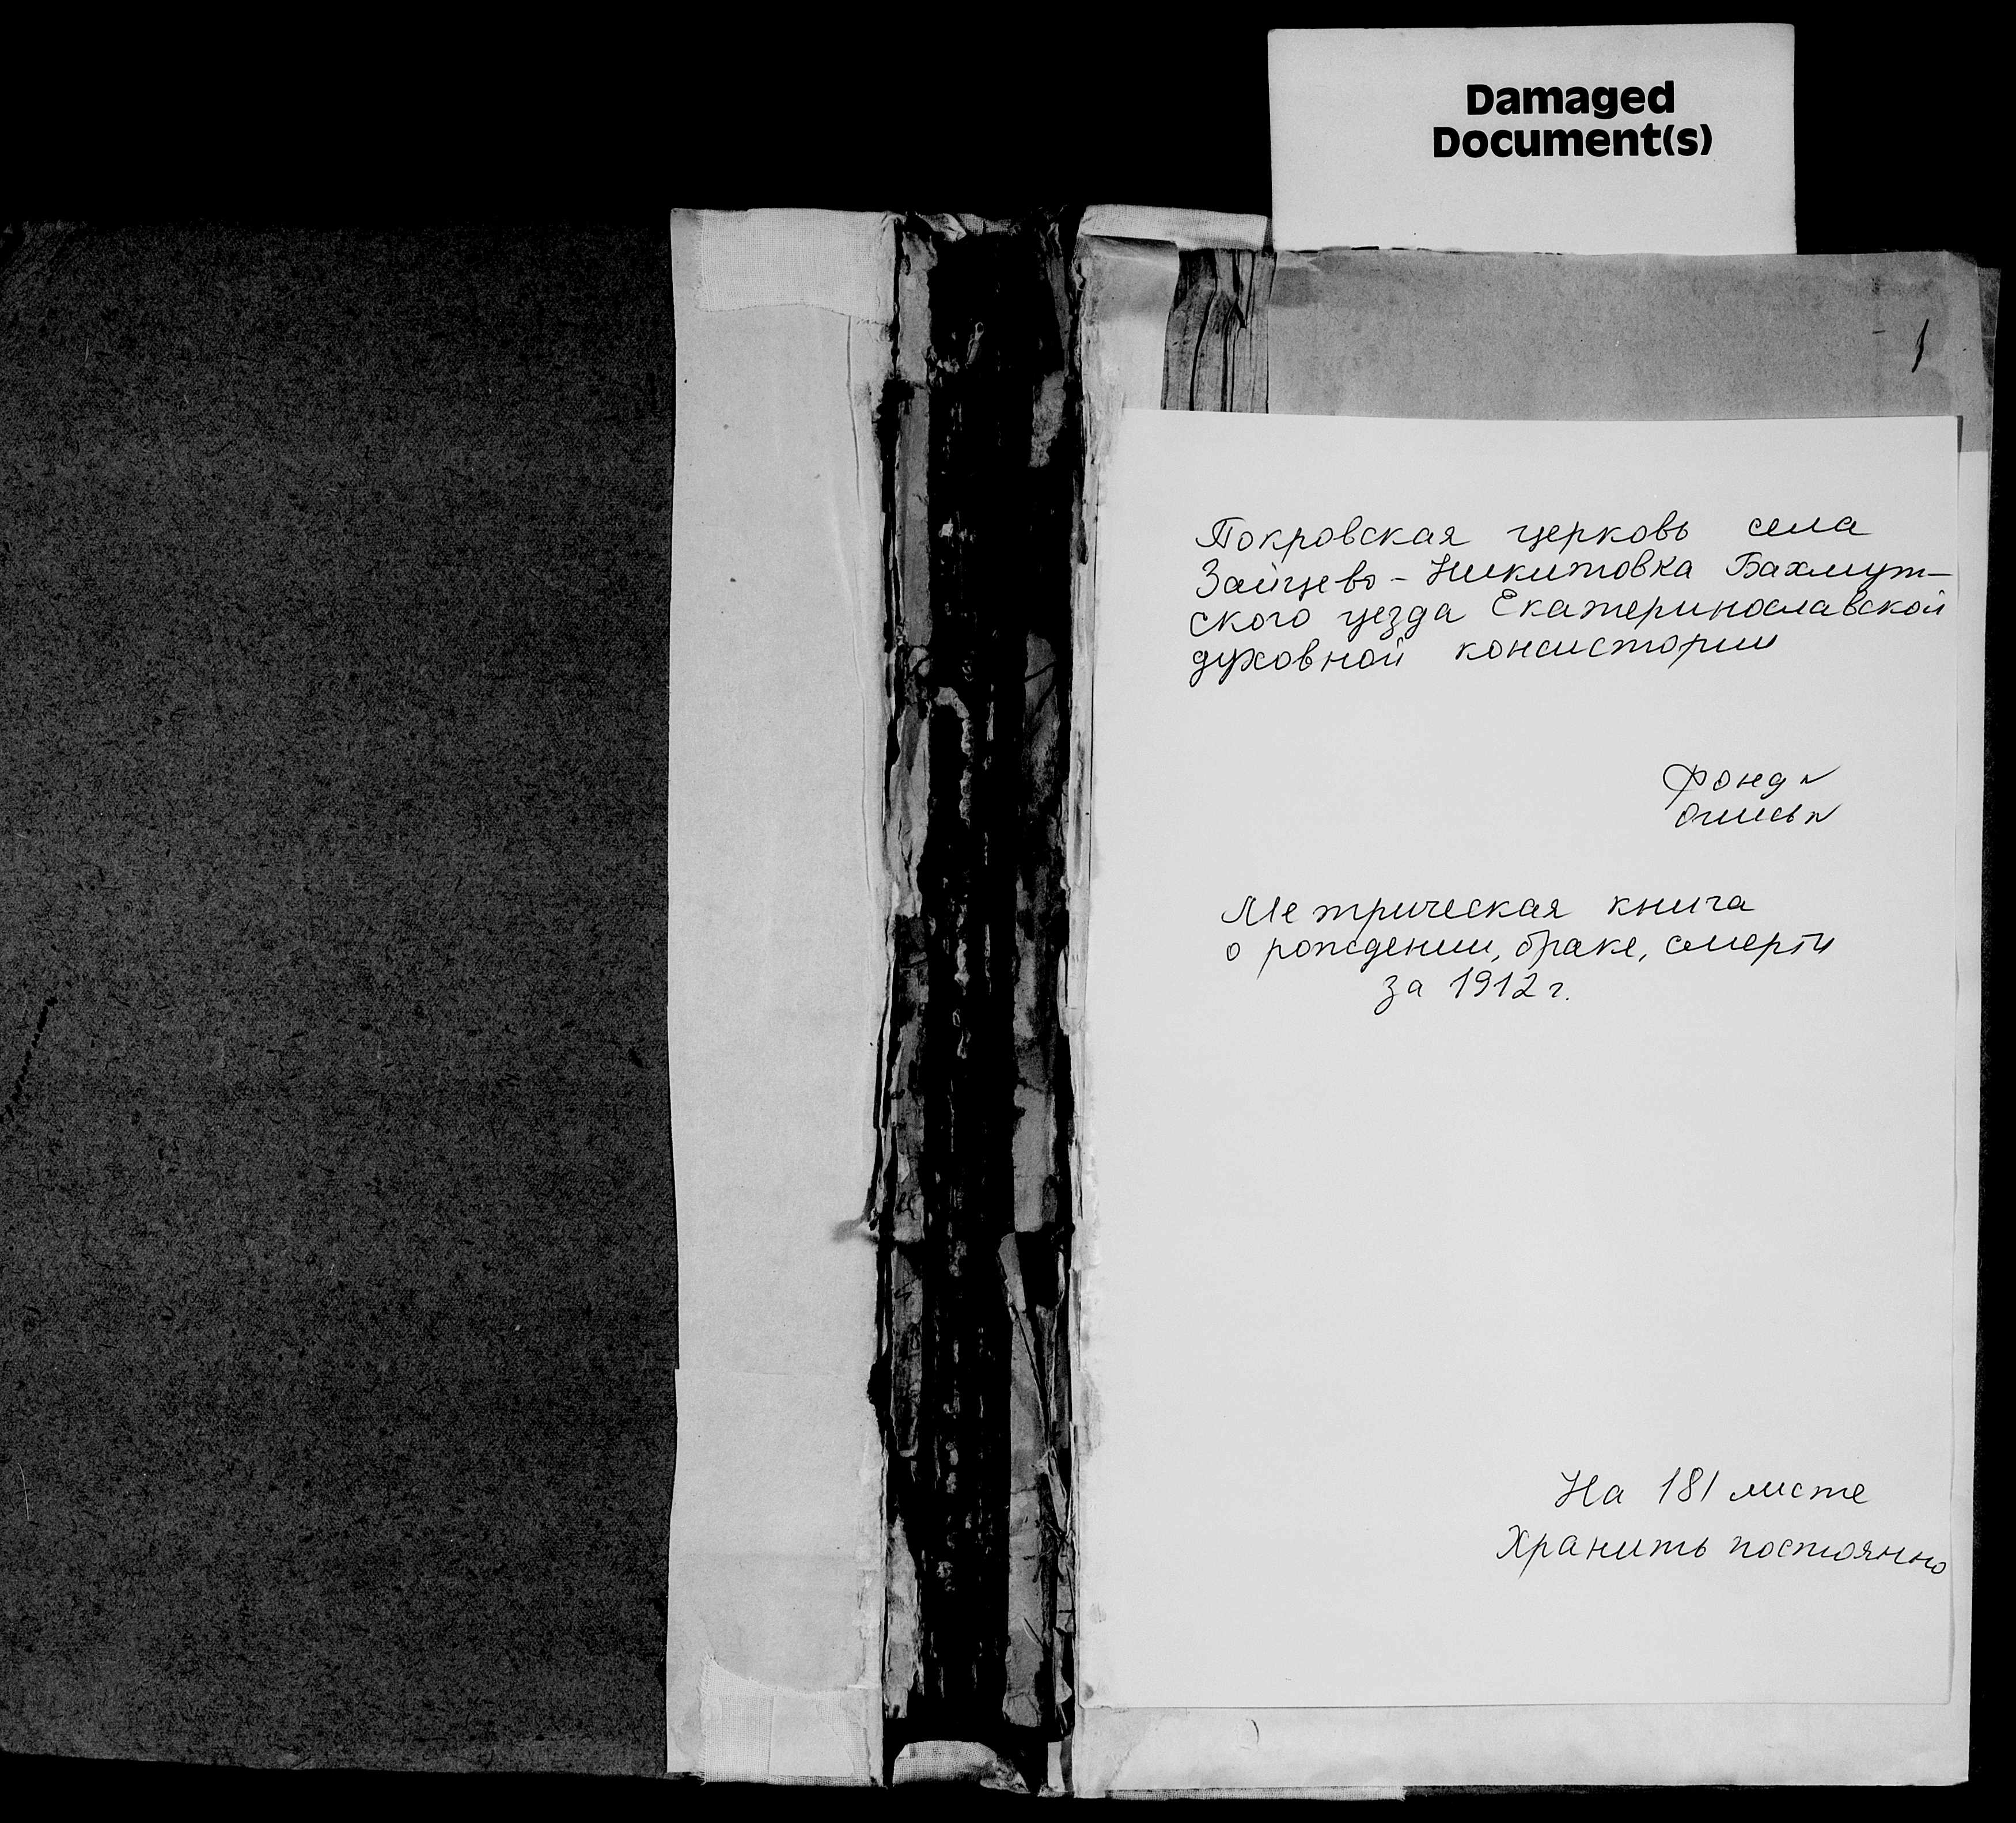 Damaged
Document(s)
1
Покровская церковь села
Зайцево-Никитовка Бахмут-
ского уезда Екатеринославской
духовной консистории
Фонд №
Опись №
Метрическая книга
о рождении, браке, смерти
за 1912 г.
На 181 листе
Хранить постоянно